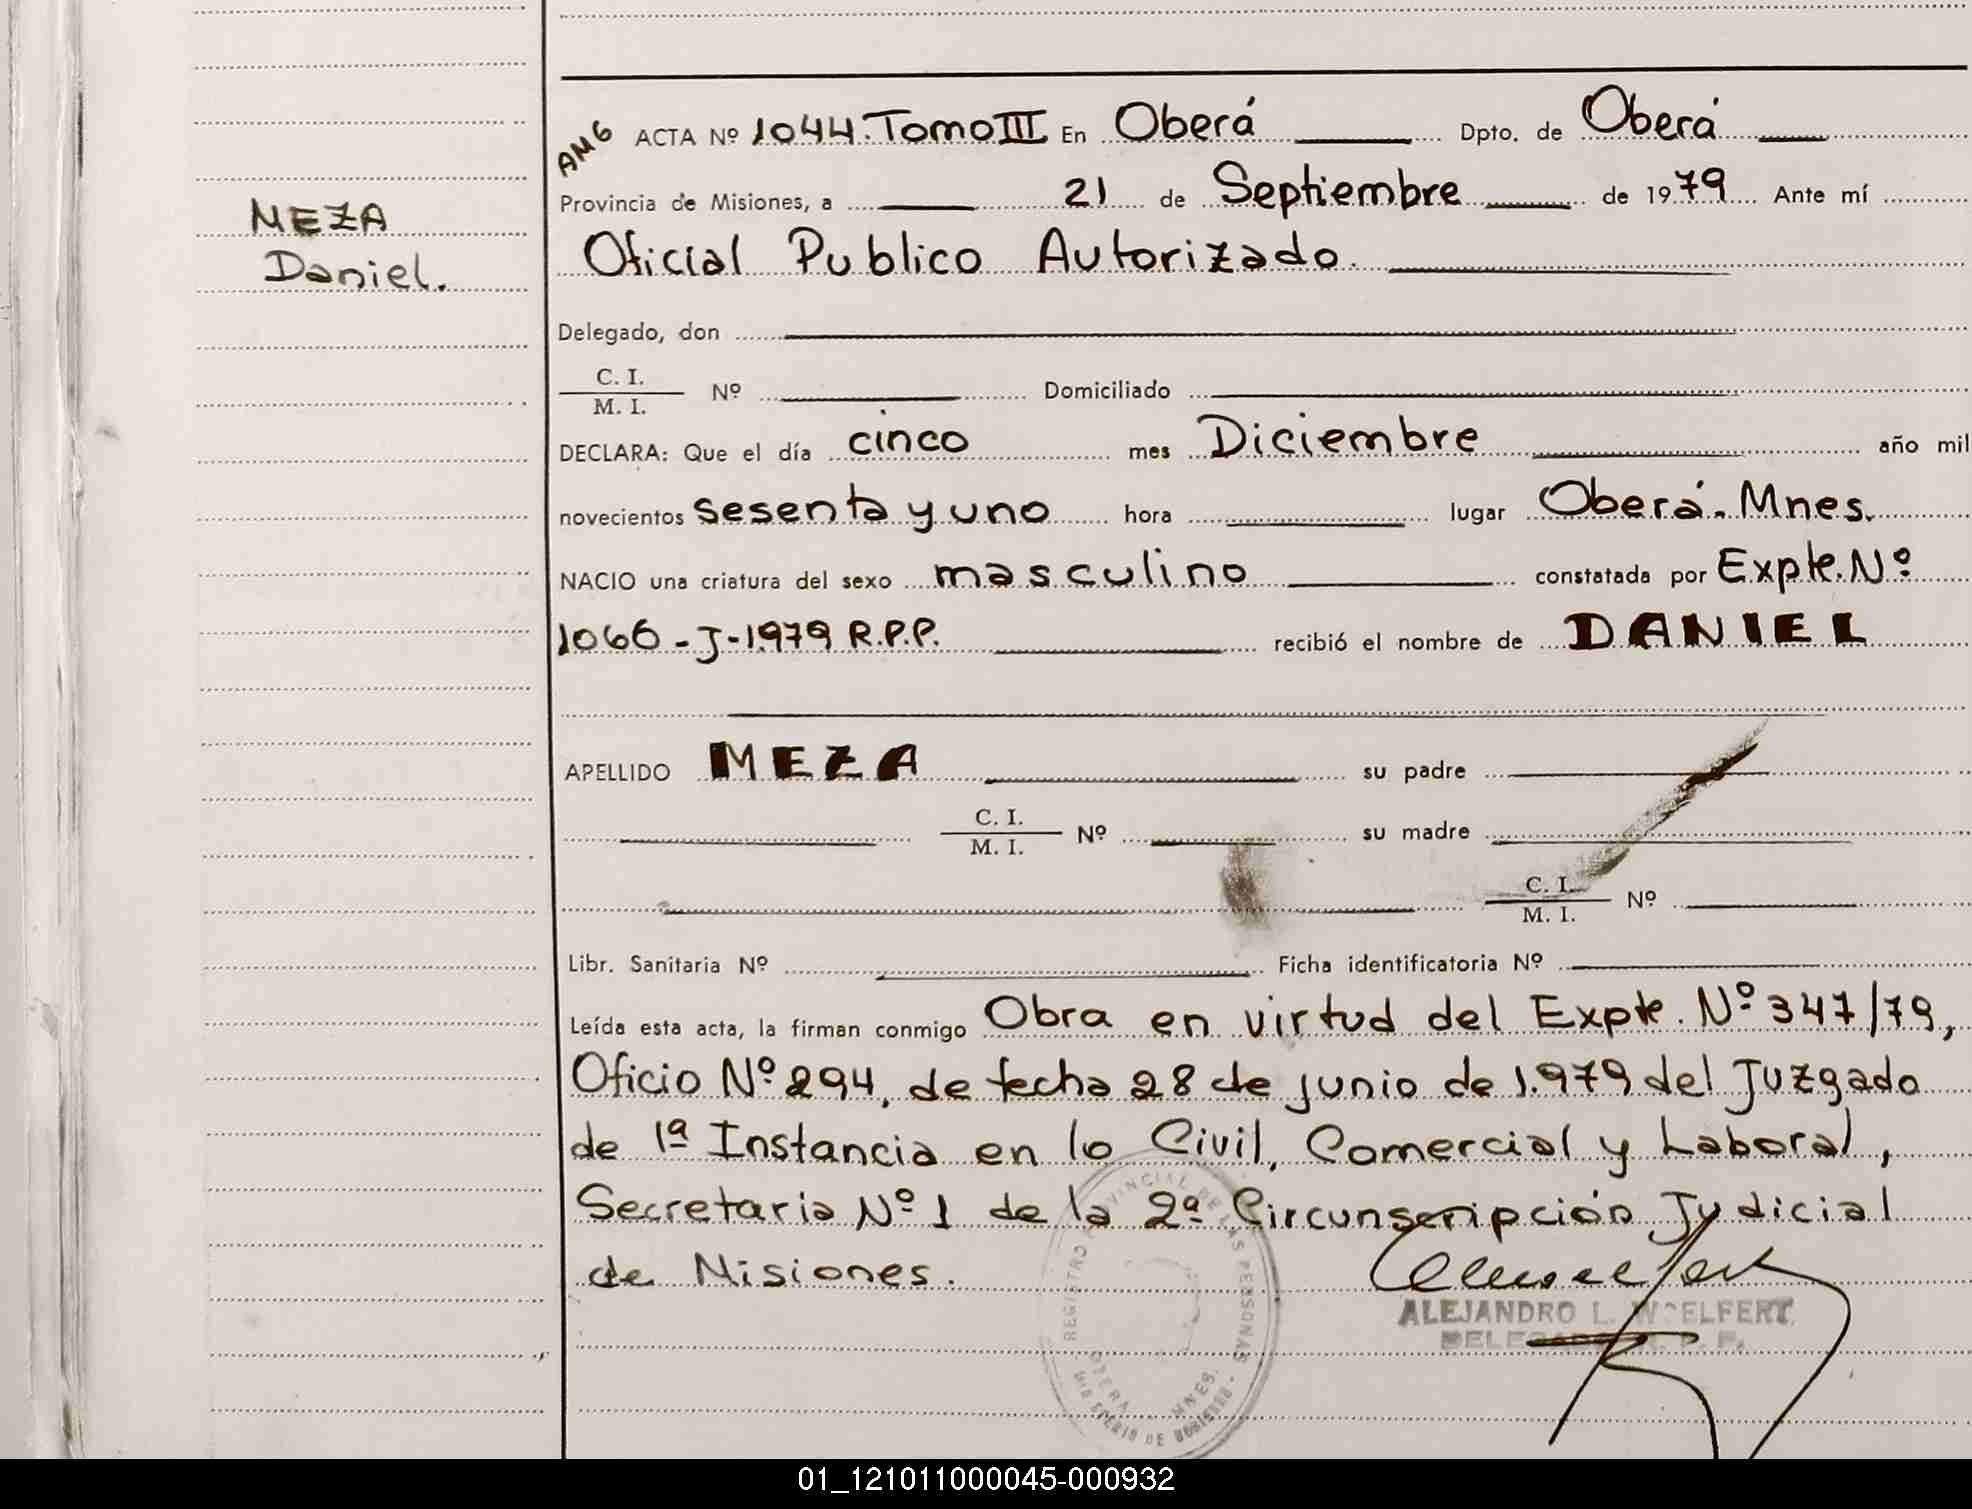 AMG ACTA Nº 1044. Tomo III En Oberá Dpto. de Oberá
Provincia de Misiones, a 21 de Septiembre de 1979 Ante mí
MEZA
Daniel.
Oficial Publico Autorizado.
Delegado, don
C. I.
M. I. Nº Domiciliado
DECLARA: Que el día cinco mes Diciembre año mil
novecientos sesenta y uno hora lugar Oberá. Mnes.
NACIO una criatura del sexo masculino constatada por Expte. Nº
1066-J-1.979 R.P.P. recibió el nombre de DANIEL
APELLIDO MEZA su padre
C. I.
M. I. Nº su madre
C. I.
M. I. Nº
Libr. Sanitaria Nº Ficha identificatoria Nº
Leída esta acta, la firman conmigo Obra en virtud del Expte. Nº 347/79,
Oficio Nº 294, de fecha 28 de junio de 1.979 del Juzgado
de 1ª Instancia en lo Civil, Comercial y Laboral,
Secretaria Nº 1 de la 2ª Circunscripción Judicial
de Misiones.
REGISTRO PROVINCIAL DE LAS PERSONAS
OBERA MNES.
ALEJANDRO L. WOELFERT
DELEGADO R. P. P.
01_121011000045-000932